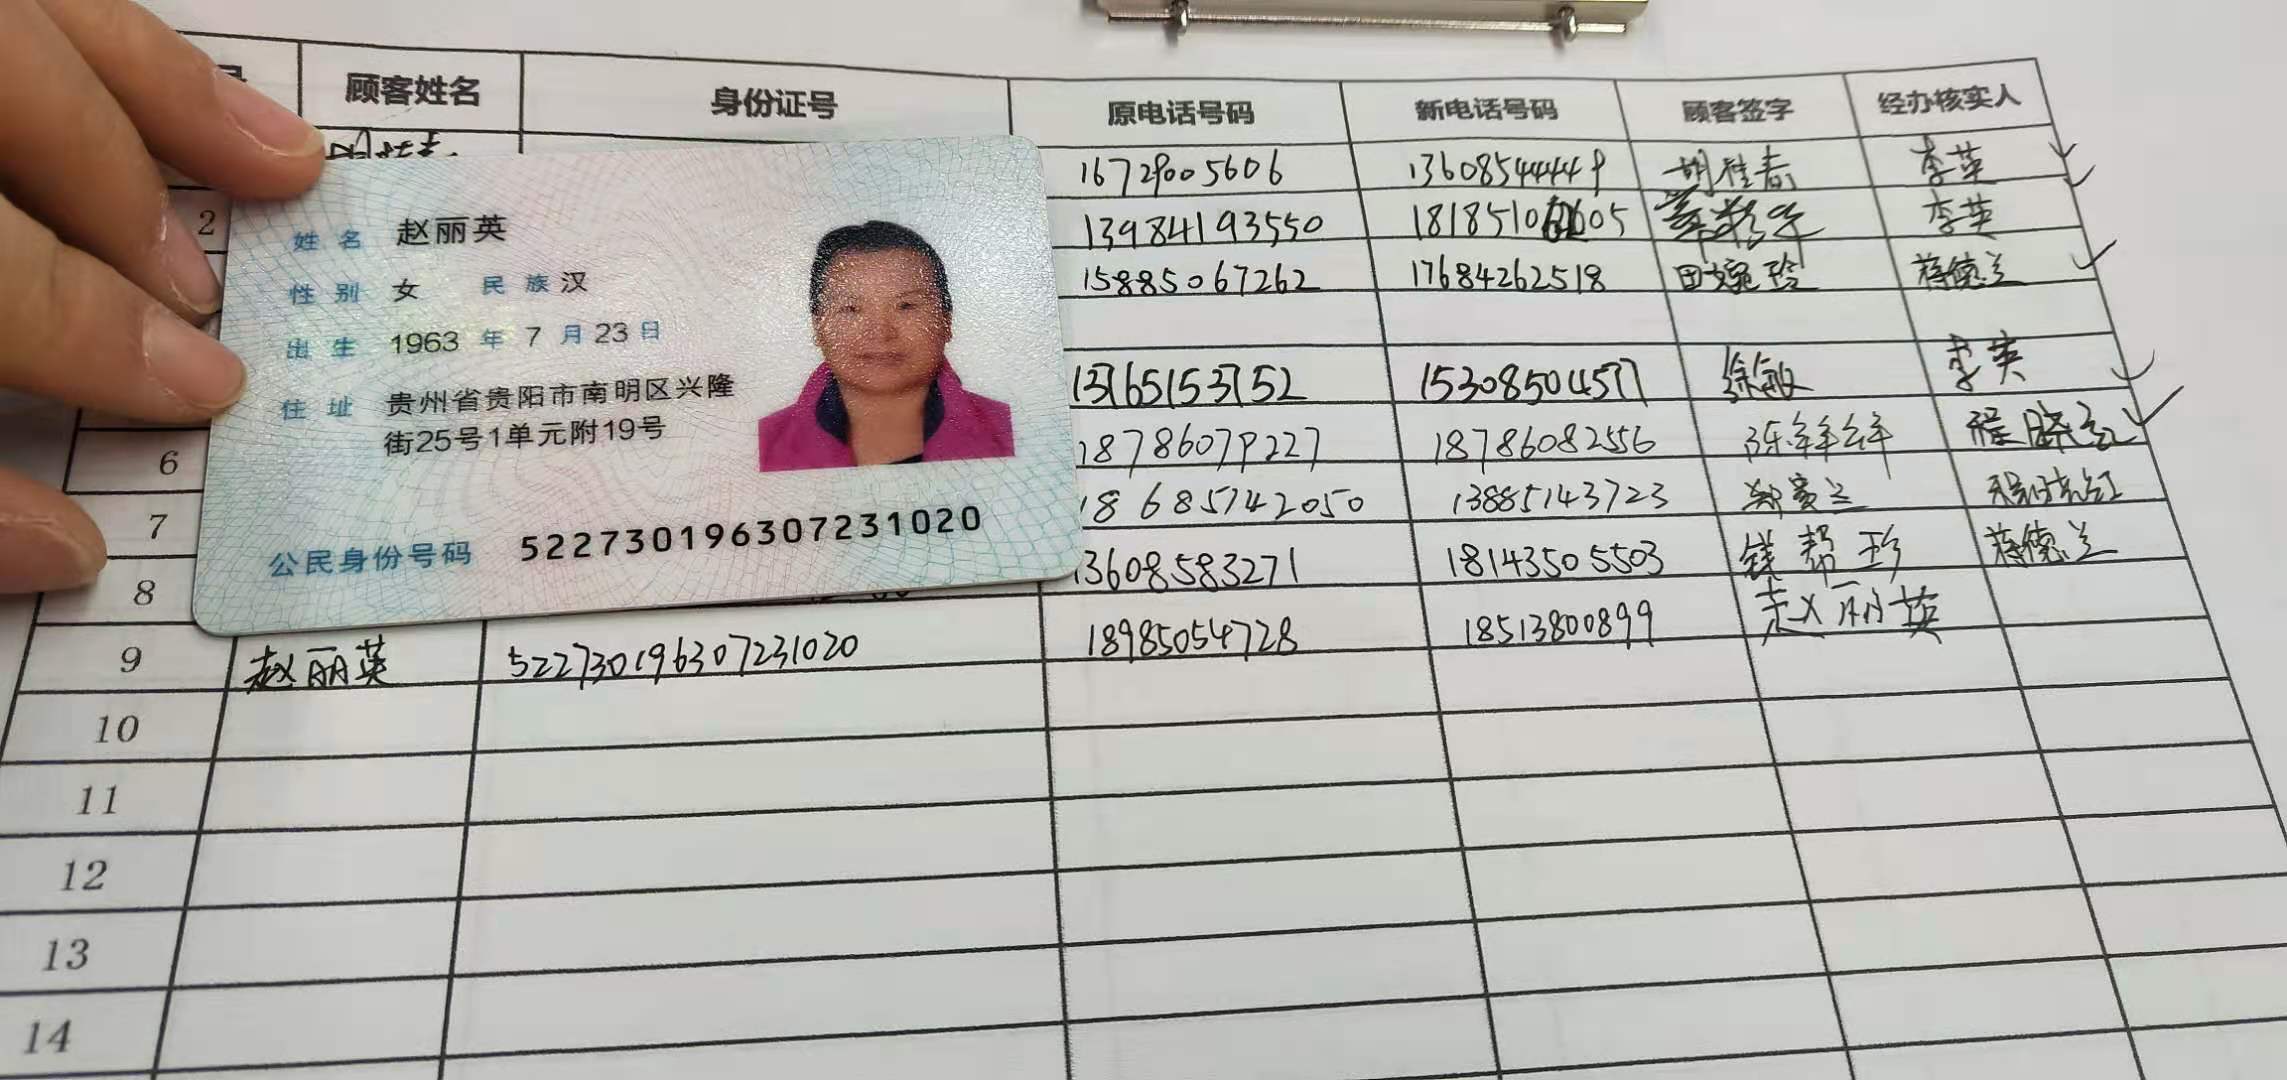 顾客姓名 身份证号 原电话号码 新电话号码 顾客签字 经办核实人
16729005606 13608544449 胡桂春 李英
2 13984193550 李英
15885067262 17684262518 田婉玲 蒋德兰
13765153752 15308504577 徐敏 李英
6 18786079227 18786082556 陈鲜鲜 程晓红
7 18685142050 13885143723 郑贵兰 程晓红
8 13608583271 18143505503 钱帮珍 蒋德兰
9 赵丽英 522730196307231020 18985054728 18513800899 赵丽英
10
11
12
13
14
姓名 赵丽英
性别 女 民族 汉
出生 1963 年 7 月 23 日
住址 贵州省贵阳市南明区兴隆
街25号1单元附19号
公民身份号码 522730196307231020